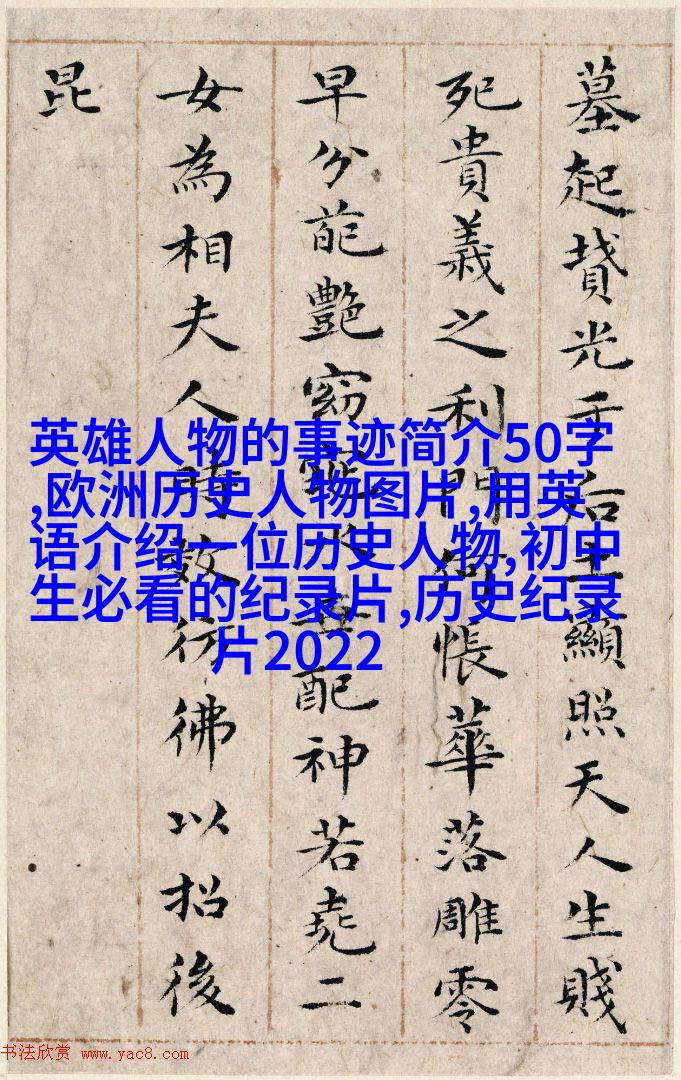 墓起墳光于后土顯照天人生賤
死貴義之利門何悵華落雕零
早分葩艷窈窕永世配神若堯二
女為相夫人時效彷彿以招後
昆
英雄人物的事迹简介50字
,欧洲历史人物图片,用英
语介绍一位历史人物,初中
生必看的纪录片,历史纪录
片2022
书法欣赏 www.yac8.com